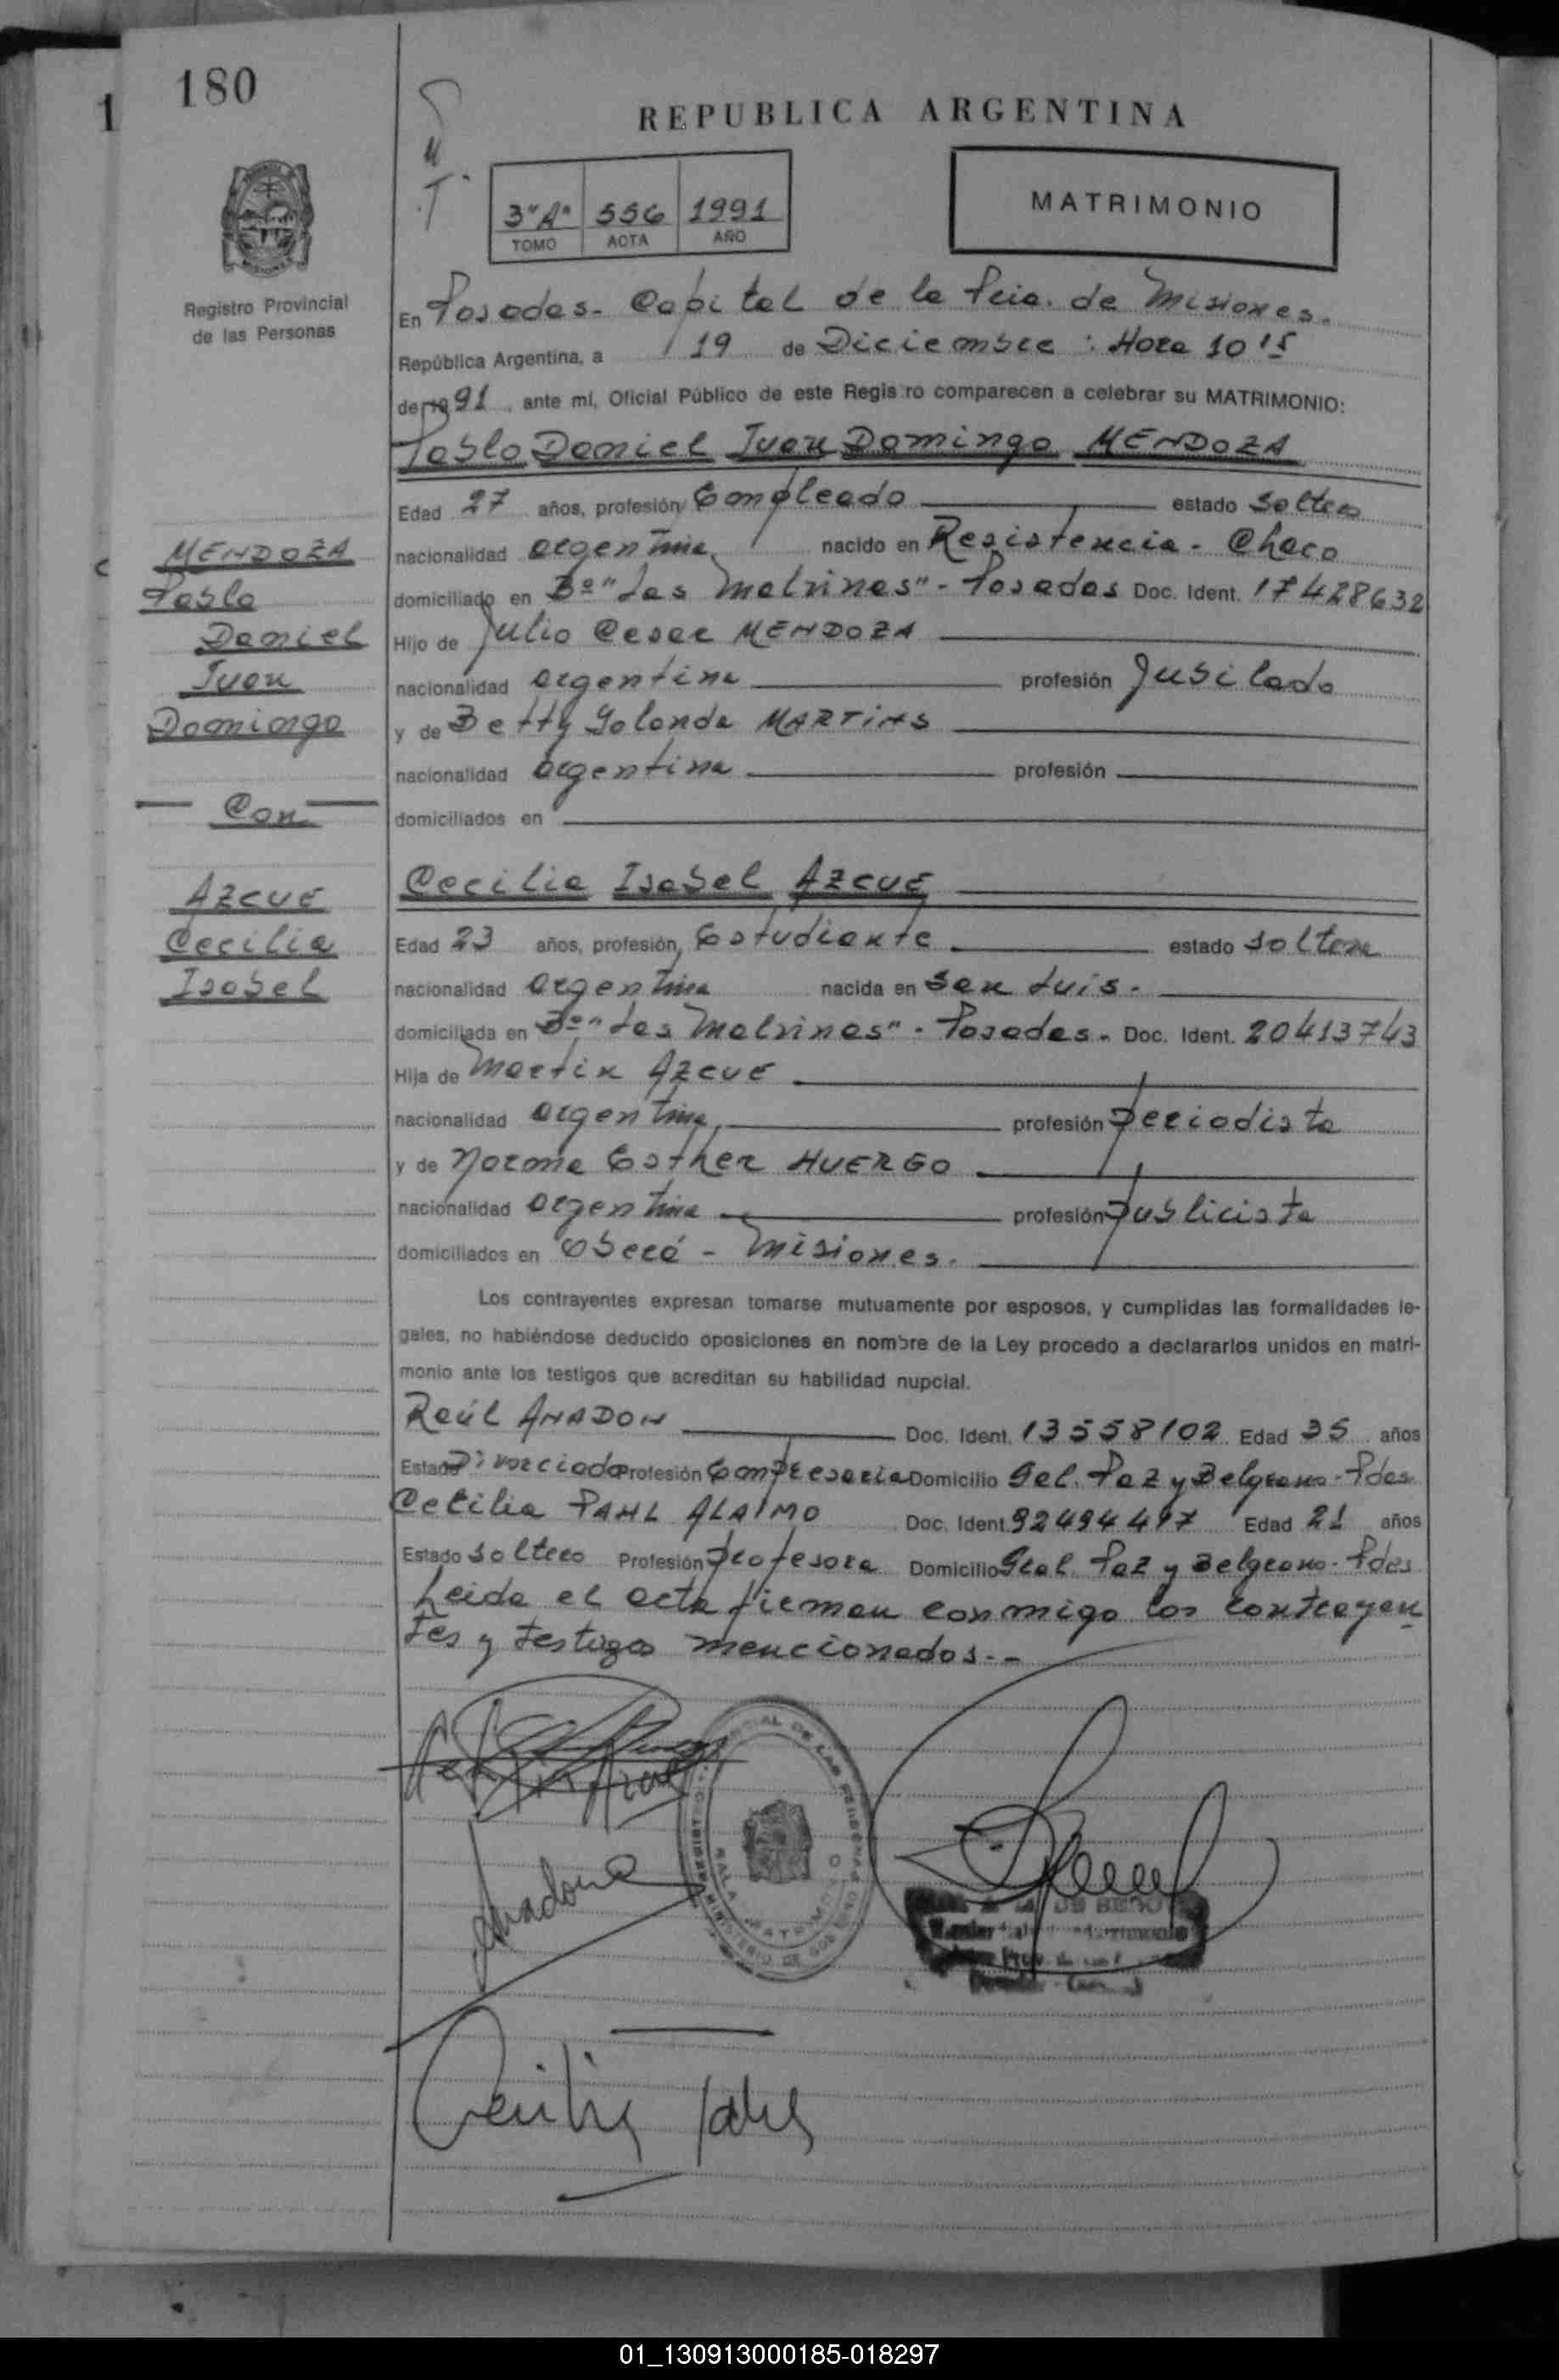 180
1
REPUBLICA ARGENTINA
3"A" 556 1991
TOMO ACTA AÑO
MATRIMONIO
Registro Provincial
de las Personas
En Posadas - Capital de la Pcia. de Misiones.
República Argentina, a 19 de Diciembre : Hora 10 15
de 1991, ante mí, Oficial Público de este Registro comparecen a celebrar su MATRIMONIO:
Pablo Daniel Juan Domingo MENDOZA
Edad 27 años, profesión Empleado estado soltero
nacionalidad argentina nacido en Resistencia - Chaco
domiciliado en Bº "Las Malvinas" - Posadas Doc. Ident. 17428632
Hijo de Julio Cesar MENDOZA
nacionalidad argentina profesión Jubilado
y de Betty Yolanda MARTINS
nacionalidad argentina profesión
domiciliados en
MENDOZA
Pablo
Daniel
Juan
Domingo
— Con —
AZCUE
Cecilia
Isabel
Cecilia Isabel AZCUE
Edad 23 años, profesión, Estudiante estado soltera
nacionalidad argentina nacida en San Luis.
domiciliada en Bº "Las Malvinas" - Posadas. Doc. Ident. 20413743
Hija de Martin AZCUE
nacionalidad argentina profesión periodista
y de Norma Esther HUERGO
nacionalidad argentina profesión publicista
domiciliados en Oberá - Misiones.
Los contrayentes expresan tomarse mutuamente por esposos, y cumplidas las formalidades le-
gales, no habiéndose deducido oposiciones en nombre de la Ley procedo a declararlos unidos en matri-
monio ante los testigos que acreditan su habilidad nupcial.
Raúl ANADON Doc. Ident. 13558102 Edad 35 años
Estado Divorciado Profesión Empresario Domicilio Gel. Paz y Belgrano - Pdas
Cecilia PAHL ALAIMO Doc. Ident. 92494497 Edad 21 años
Estado soltero Profesión profesora Domicilio Gral Paz y Belgrano - Pdas
Leida el acta firman conmigo los contrayen
tes y testigos mencionados.-
MINISTERIO DE GOBIERNO
SALA MATRIMONIO
DE LAS PERSONAS
Cecilia Pahl
01_130913000185-018297